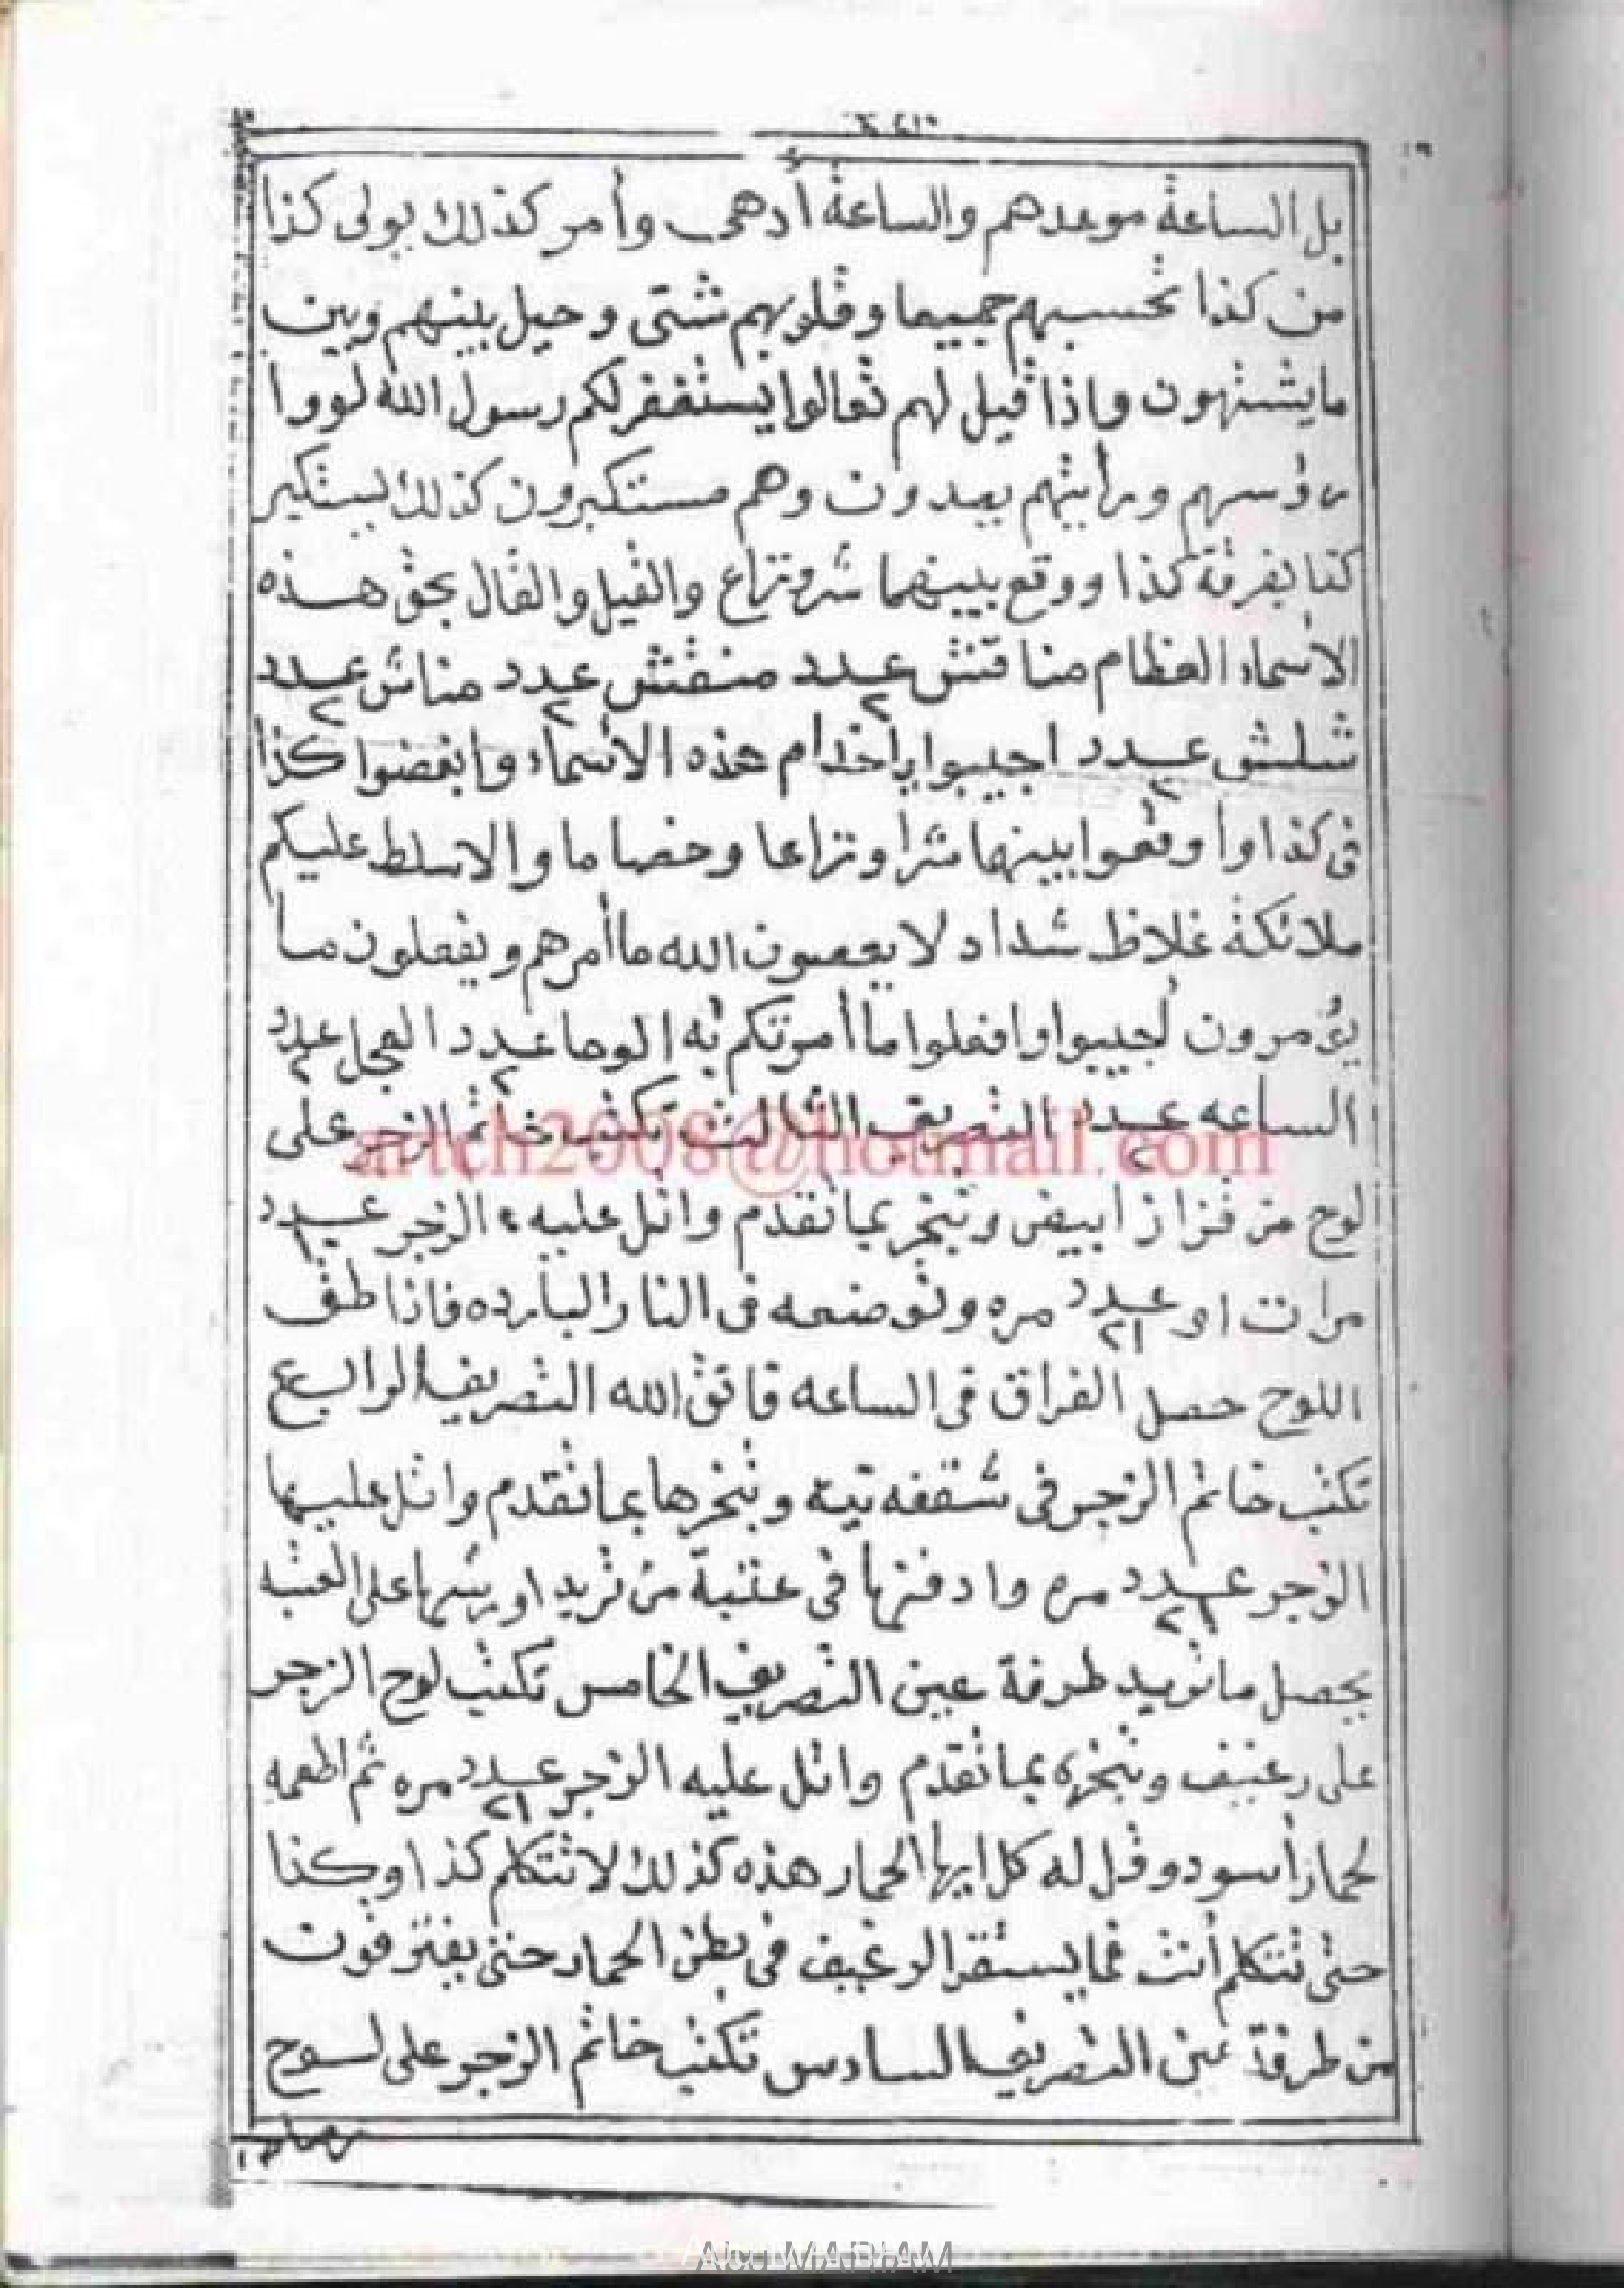 بل الساعة موعدهم والساعة أدهى وأمر كذلك يولى كذا
من كذا تحسبهم جميعا وقلوبهم شتى وحيل بينهم وبين
ما يشتهون واذا قيل لهم تعالوا يستغفر لكم رسول الله لووا
رؤسهم ورأيتهم يصدون وهم مستكبرون كذلك يستكبر
كذا بفرقة كذا ووقع بينهما شر ونزاع والقيل والقال بحق هذه
الاسماء العظام مناقتش عدد ٢ منقتش عدد ٢ مناش عدد ٢
شلش عدد ٢ اجيبوا ياخدام هذه الاسماء وابغضوا كذا
فى كذا واوقعوا بينهما شرا ونزاعا وخصاما والا سلط عليكم
ملائكة غلاظ شداد لا يعصون الله ما أمرهم ويفعلون ما
يؤمرون أجيبوا وافعلوا ما أمرتكم به الوحا عدد ٢ العجل عدد ٢
الساعه عدد ٢ التصريف الثالث تكتب خاتم الزجر على
لوح من قزاز أبيض وتبخر بما تقدم واتل عليه الزجر عدد
مرات او عدد ٢١ مره وتوضعه فى النار البارده فاذا طق
اللوح حصل الفراق فى الساعه فاتق الله التصريف الرابع
تكتب خاتم الزجر فى شقفه نية وتبخرها بما تقدم واتل عليها
الزجر عدد ٢١ مره وادفنها فى عتبة من تريد او رشها على العتبه
يحصل ما تريد طرفة عين التصريف الخامس تكتب لوح الزجر
على رغيف وتبخره بما تقدم واتل عليه الزجر عدد ٢١ مره ثم اطعمه
لحمار أسود وقل له كل ايها الحمار هذه كذلك لا تتكلم كذا وكذا
حتى تتكلم أنت فما يستقر الرغيف فى بطن الحمار حتى يفترقوت
من طرفة عين التصريف السادس تكتب خاتم الزجر على لوح
رصاص
artch2008@hotmail.com